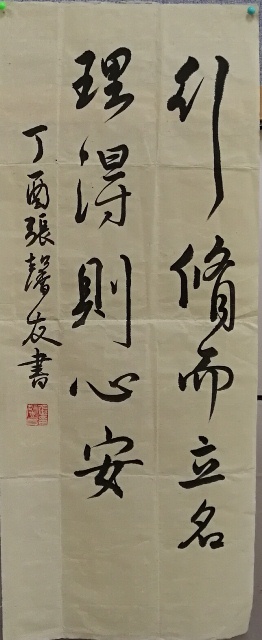 行脩而立名
理得則心安
丁酉張馨友書